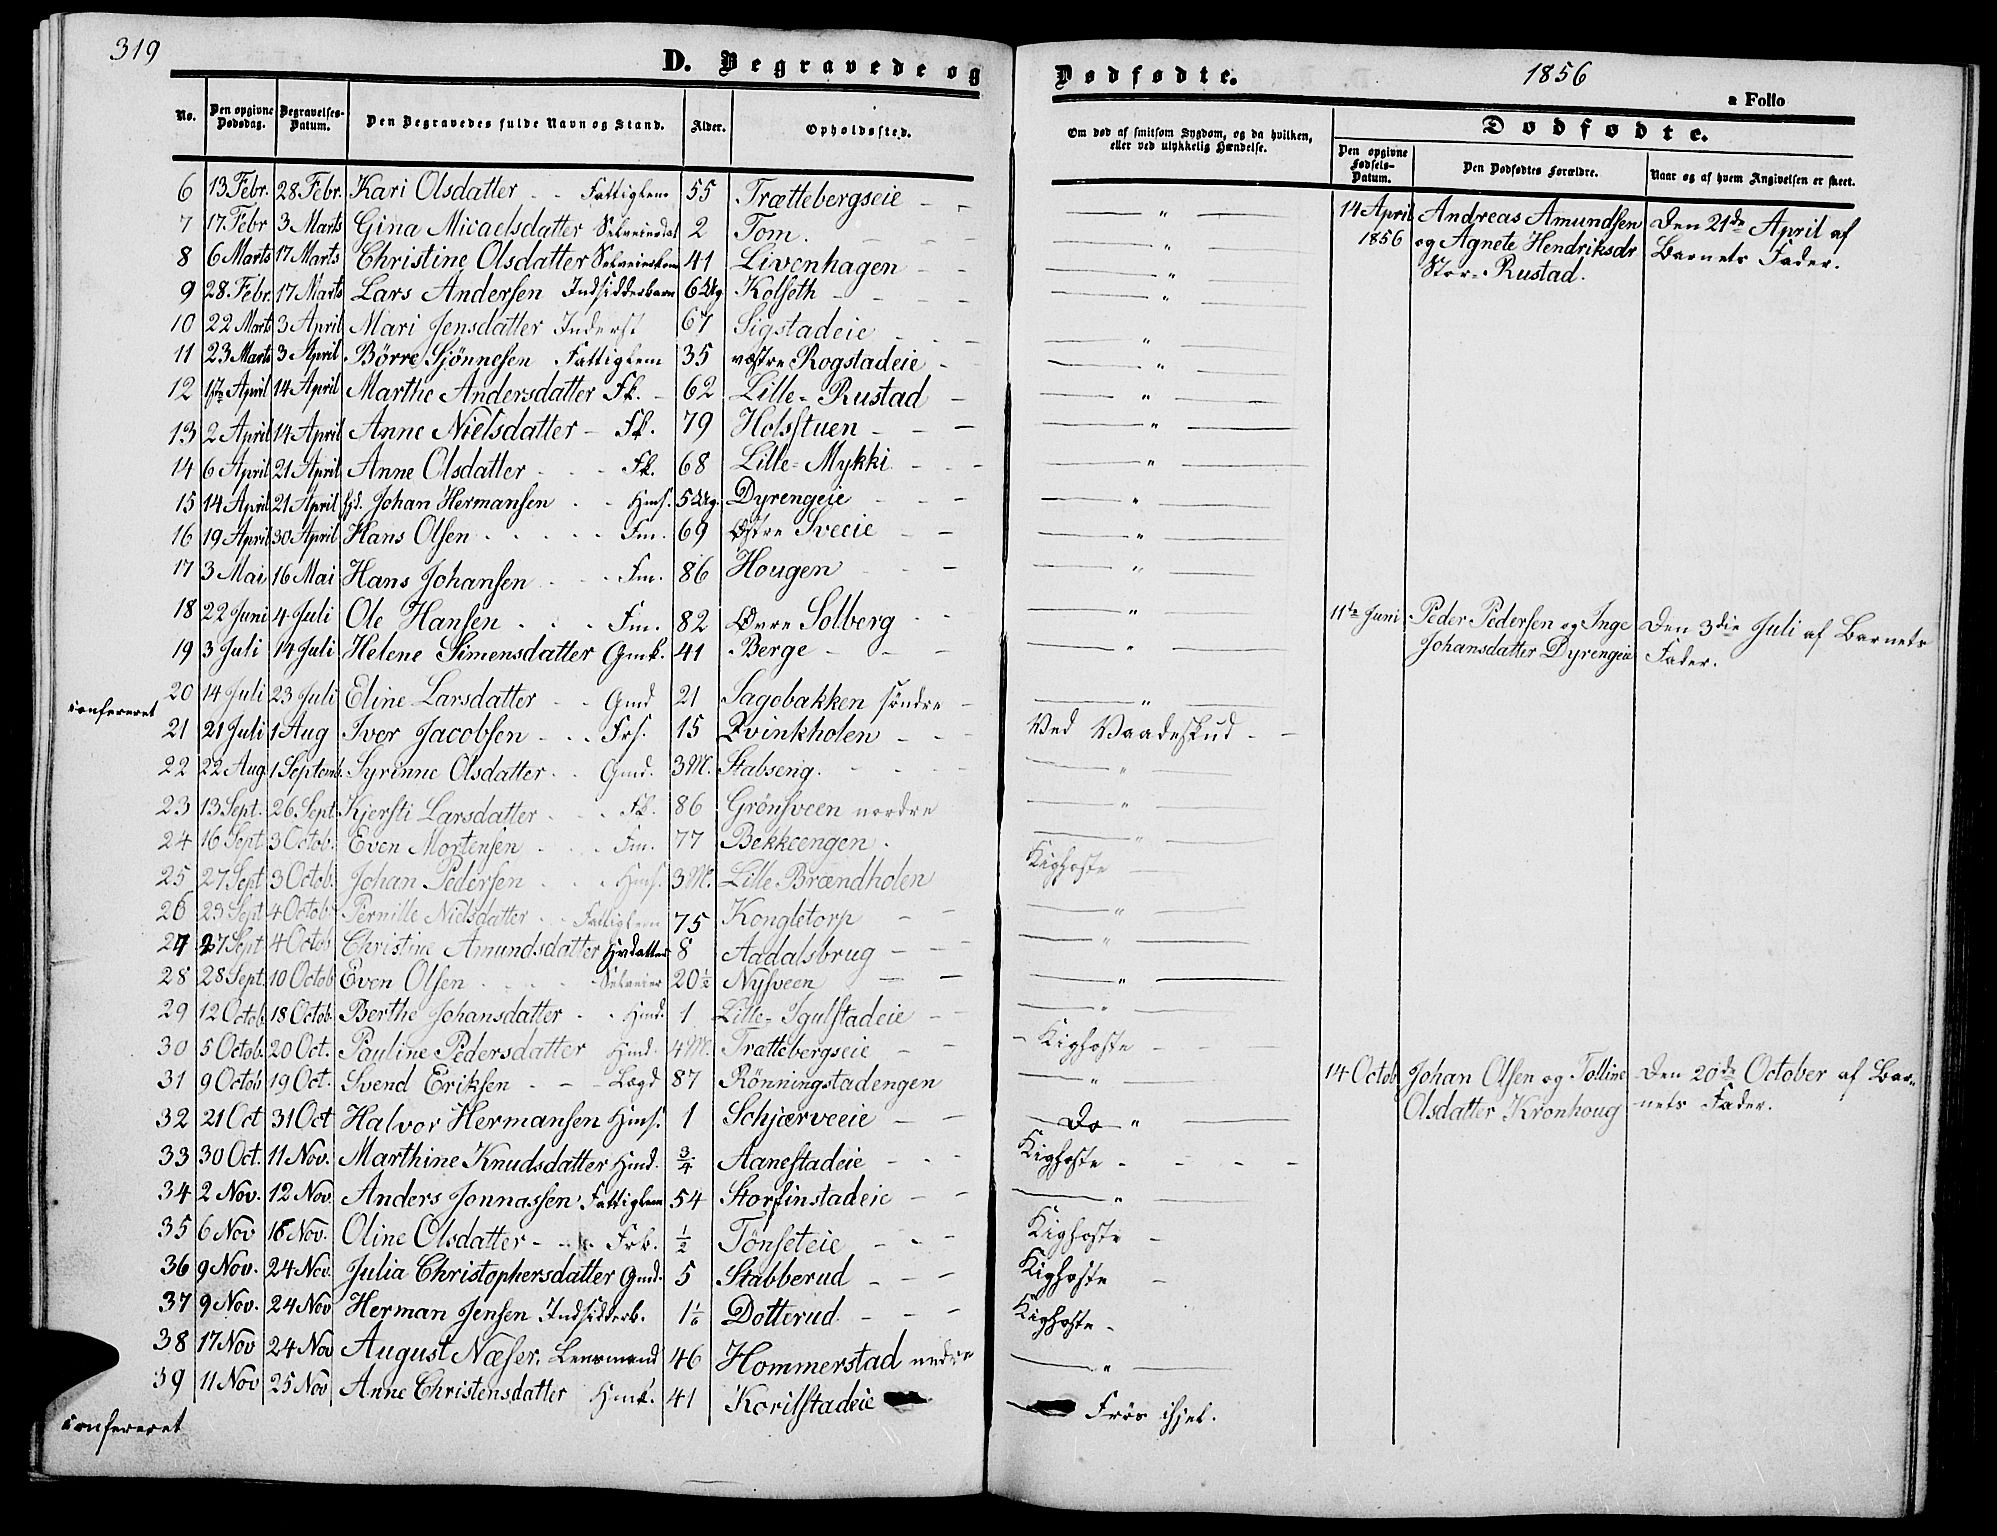 319
D. Begravede og Dødfødte.
1856
a Folio
No. | Den opgivne Dødsdag. | Begravelses-Datum. | Den Begravedes fulde Navn og Stand. | Alder. | Opholdssted. | Om død af smitsom Sygdom, og da hvilken, eller ved ulykkelig Hændelse.
Dødfødte.
Den opgivne Fødsels-Datum. | Den Dødfødtes Forældre. | Naar og af hvem Angivelsen er skeet.
6 13 Febr. 28 Febr. Kari Olsdatter - - Fattiglem 55 Trættebergseie - - — " —
14 April 1856 Andreas Amundsen og Agnete Hendriksdr Stor-Rustad. Den 21de April af Barnets Fader.
7 17 Febr 3 Marts Gina Micaelsdatter Selveierdat 2 Tom. — " —
8 6 Marts 17 Marts Christine Olsdatter Selveierkone 41 Livenhagen - - — " —
9 28. Febr. 17 Marts Lars Andersen Indsidderbarn 6 Ug Kolseth - - — " —
10 22 Marts 3 April Mari Jensdatter Inderst 67 Sigstadeie — " —
11 23 Marts 3 April Börre Sjönnesen Fattiglem 35 vestre Rogstadeie - — " —
12 1ste April 14 April Marthe Andersdatter Fk. - 62 Lille-Rustad - — " —
13 2 April 14 April Anne Nielsdatter - Fk. 79 Holsstuen - - - — " —
14 6 April 21 April Anne Olsdatter - - Fk. 68 Lille-Mykki - - - — " —
15 14 April 21 April Johan Hermansen - - Hms. 5 Ug. Dyrengeie - - — " —
16 19 April 30 April Hans Olsen - - - - Fm. 69 Østre Sveeie - - — " —
17 3 Mai 16 Mai Hans Johansen - - Fm. 86 Hougen - — " —
18 22 Juni 4 Juli Ole Hansen - - - Fm. 82 Øvre Solberg - - — " —
11te Juni Peder Pedersen og Inge Johansdatter Dyrengeie Den 3die Juli af Barnets Fader.
19 3 Juli 14 Juli Helene Simensdatter Gmk. 41 Berge - - - — " —
20 14 Juli 23 Juli Eline Larsdatter - - Gmd 21 Sagobakken söndre - — " —
confereret
21 21 Juli 1 Aug Iver Jacobsen - - - Frs. 15 Qvinkholen - - - Ved Vaadeskud - -
22 22 Aug. 1 Septemb. Syrinne Olsdatter - - Gmd. 3 M. Stabseng. - - - — " —
23 13 Sept. 26 Sept. Kjersti Larsdatter - - - Fk. 86 Grönsveen nordre — " —
24 16 Sept 3 Octob. Even Mortensen - - - Fm. 77 Bekkeengen. — " —
25 27 Sept 3 Octob. Johan Pedersen - - - Hms. 3 M. Lille Brændholen Kighoste —
26 23 Sept 4 Octob Pernille Nielsdatter - - Fattiglem 75 Kongletorp - - — " —
27 27 Sept 4 Octob Christine Amundsdatter Hvdatter 8 Aadalsbrug - - — " —
28 28 Sept. 10 Octob Even Olsen - - - - Selveier 20½ Nysveen - - — " —
29 12 Octob 18 Octob. Berthe Johansdatter - - Hmd. 1 Lille-Igulstadeie - - — " —
30 5 Octob. 20 Oct. Pauline Pedersdatter Hmd. 4 M. Trættebergseie - - - Kighoste - - -
31 9 Octob 19 Oct. Svend Eriksen - - - Lægd 87 Rönningstadengen — " —
14 Octob Johan Olsen og Tolline Olsdatter Kronhoug Den 20de October af Barnets Fader.
32 21 Oct 31 Oct Halvor Hermansen Hms. 1 Schjærveeie - - — Do " —
33 30 Oct. 11 Nov. Marthine Knudsdatter Hmd. ¾ Aanestadeie - - - Kighoste - - - -
34 2 Nov. 12 Nov. Anders Jonnassen Fattiglem 54 Storfinstadeie - - — " —
35 6 Nov 16 Nov. Oline Olsdatter - - - Frb. ½ Tönseteie - - - Kighoste -
36 9 Nov. 24 Nov. Julia Christophersdatter Gmd. 5 Stabberud - - - Kighoste -
37 9 Nov. 24 Nov Herman Jensen Indsidderb. 1 1/6 Dotterud - - Kighoste -
38 17 Nov 24 Nov August Næser. Lensmand 46 Hommerstad nedre — " —
39 11 Nov 25 Nov Anne Christensdatter Hmk. 41 Korilstadeie Frös ihjel.
confereret